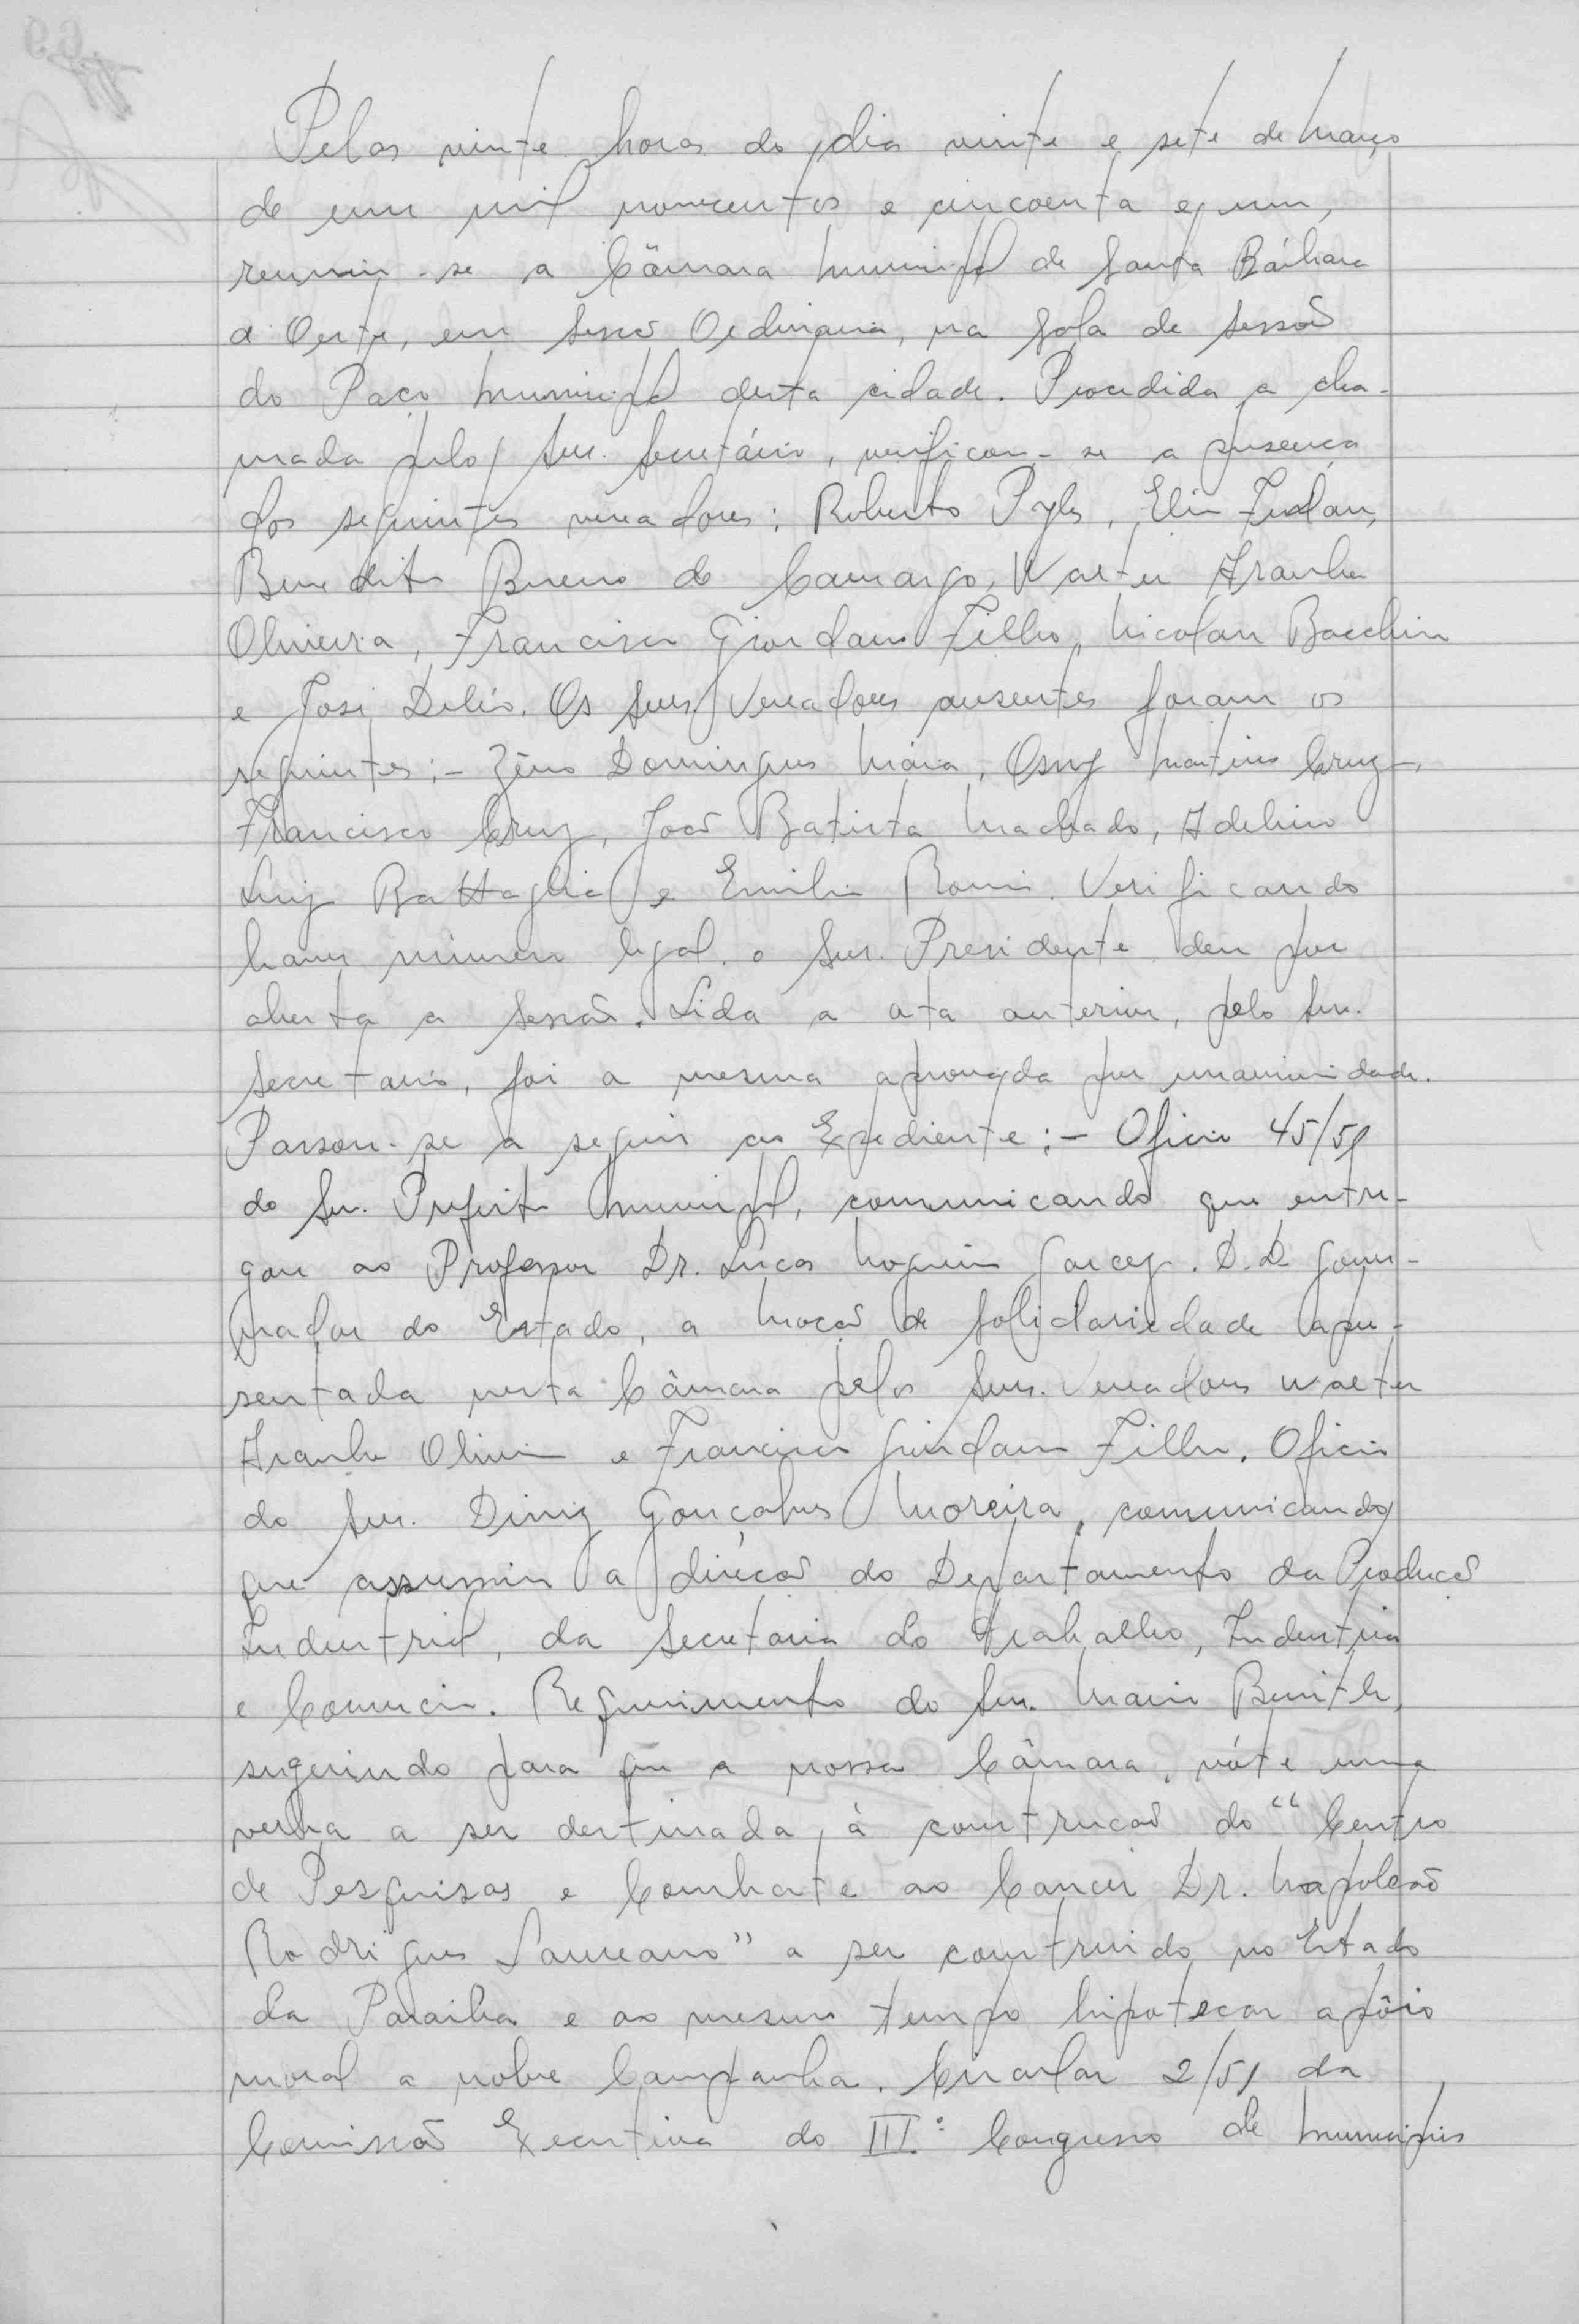 Pelas vinte horas do dia vinte e sete de Março
de um mil novecentos e cincoenta e um,
reuniu-se a Câmara Municipal de Santa Bárbara
d'Oeste, em Sessão Ordinaria, na Sala de Sessão
do Paço Municipal desta cidade. Procedida a cha-
mada pelo Snr. Secretário, verificou-se a presença
dos seguintes vereadores: Roberto Pyles, Elio Furlan,
Benedito Bueno de Camargo, Walter Aranha
Oliveira, Francisco Giordano Filho, Nicolau Bacchin
e José Delió. Os Snrs Vereadores ausentes foram os
seguintes:- Zêno Domingues Maia, Osny Martins Cruz,
Francisco Cruz, João Batista Machado, Adelino
Luiz Battaglia e Emilio Romi. Verificando
haver número legal o Snr. Presidente deu por
aberta a Sessão. Lida a ata anterior, pelo Snr.
Secretario, foi a mesma aprovada por unanimidade.
Passou-se a seguir ao Expediente:- Oficio 45/51
do Snr. Prefeito Municipal, comunicando que entre-
gou ao Professor Dr. Lucas Nogueira Garcez. D.D. Gover-
nador do Estado, a Moção de Solidariedade apre-
sentada nesta Câmara pelos Snrs. Vereadores Walter
Aranha Oliveira e Francisco Giordano Filho. Oficio
do Snr. Diniz Gonçalves Moreira, comunicando
que assumiu a direção do Departamento da Produção
Industrial, da Secretaria do Trabalho, Industria
e Comercio. Requerimento do Snr. Mario Benith,
sugerindo para que a nossa Câmara, vóte uma
verba a ser destinada, à construcão do "Centro
de Pesquisas e Combate ao Cancer Dr. Napoleão
Rodrigues Laureano" a ser construido no Estado
da Paraiba e ao mesmo tempo hipotecar apôio
moral a nobre Campanha. Circular 2/51 da
Comissão Executiva do III.º Congresso de Municipios